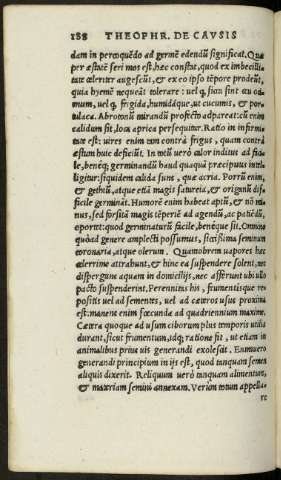 188 THEOPHR. DE CAVSIS
dam in percoquēdo ad germē edendū significat. Quæ
per æstatē seri mos est, hæc constat, quod ex imbecilli
tate celeriter augescūt, & ex eo ipso tēpore prodeūt,
quia hyemē nequeāt tolerare: uel q, suū sint au
mnum, uel q, frigida, humidáque, ut cucumis, & por
tulaca. Abrotonū mirandū profectò adpareat: cū enim
calidum sit, loca aprica persequitur. Ratio in infirmi
tate est: uires enim tam contrà frigus, quàm contrà
æstum huic deficiūt. In totū uerò calor inditus ad faci
le, benéq; germinandū haud quaquā præcipuus intel-
ligitur: siquidem calida sunt, quæ acria. Porrū enim,
& gethiū, atque etiā magis satureia, & origanū dif
ficile germināt. Humorē enim habeat aptū, & nō ni
mus, sed forsitā magis tēperiē ad agendū, ac patiēdū,
oportet: quod germinaturū facile, benéque sit. Omnino
quòad genere amplecti possumus, siccissima seminum
coronaria, atque olerum. Quamobrem uapores hæc
celerrime attrahunt, & hinc ea suspendere solent, nec
dispergunt aquam in domicilijs, nec asserunt ubi ullo
pacto suspenderint. Perennius his, frumentisque re
positis uel ad sementes, uel ad cæteros usus proxima
est: manent enim fœcunda ad quadriennium maxime.
Cætera quoque ad usum ciborum plus temporis utilia
durant, sicut frumentum, idq; ratione fit, ut etiam in
animalibus prius uis generandi exolescat. Enimuero
generandi principium in ijs est, quod tanquam semen
aliquis dixerit. Reliquum uerò tanquam alimentum,
& materiam semini annexam. Verùm totum appella-
re